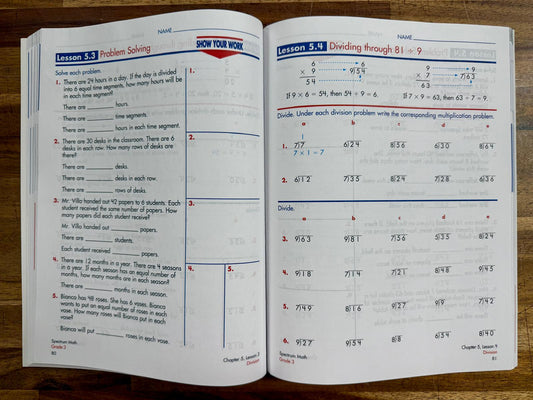 NAME
Lesson 5.3 Problem Solving
SHOW YOUR WORK
Solve each problem.
1. There are 24 hours in a day. If the day is divided
into 6 equal time segments, how many hours will be
in each time segment?
There are hours.
There are time segments.
There are hours in each time segment.
2. There are 30 desks in the classroom. There are 6
desks in each row. How many rows of desks are
there?
There are desks.
There are desks in each row.
There are rows of desks.
3. Mr. Villa handed out 42 papers to 6 students. Each
student received the same number of papers. How
many papers did each student receive?
Mr. Villa handed out papers.
There are students.
Each student received papers.
4. There are 12 months in a year. There are 4 seasons
in a year. If each season has an equal number of
months, how many months are in each season?
There are months in each season.
5. Bianca has 48 roses. She has 6 vases. Bianca
wants to put an equal number of roses in each
vase. How many roses will Bianca put in each
vase?
Bianca will put roses in each vase.
1.
2.
3.
4. 5.
Spectrum Math
Grade 3
80
Chapter 5, Lesson 3
Division
NAME
Lesson 5.4 Dividing through 81 ÷ 9
6 6
× 9 9)54
54
If 9 × 6 = 54, then 54 ÷ 9 = 6.
9 9
× 7 7)63
63
If 7 × 9 = 63, then 63 ÷ 7 = 9.
Divide. Under each division problem write the corresponding multiplication problem.
a b c d e
1
1. 7)7 6)24 8)56 6)30 8)64
7 × 1 = 7
2. 6)12 7)35 8)24 7)28 6)36
Divide.
a b c d e
3. 9)63 9)81 7)56 5)35 8)24
4. 9)18 7)14 7)21 8)48 9)45
5. 7)49 8)16 9)27 9)9 7)42
6. 9)27 9)54 8)8 6)54 8)40
Spectrum Math
Grade 3
Chapter 5, Lesson 4
Division
81